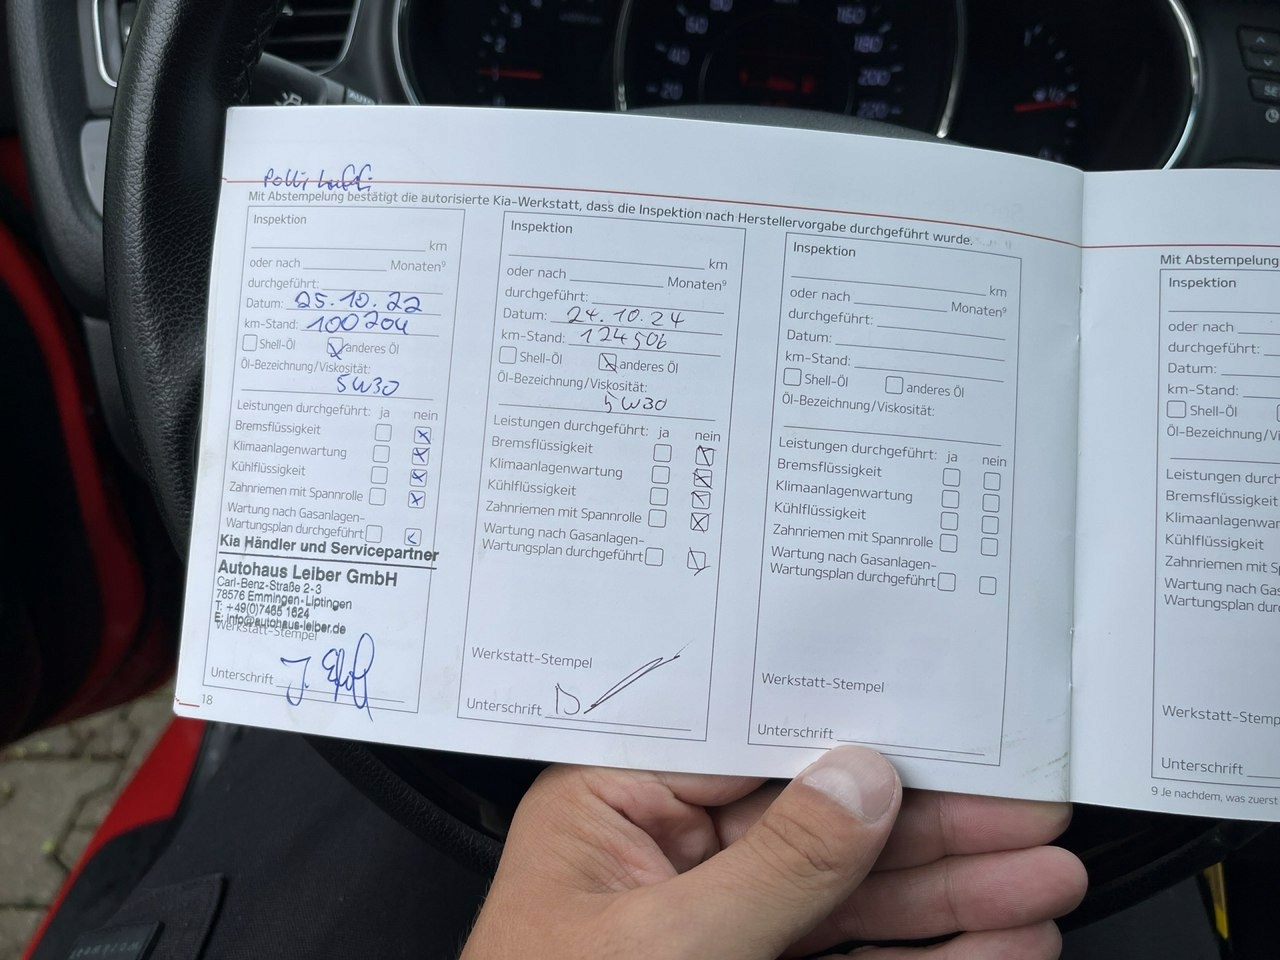 Polli Luft:
Mit Abstempelung bestätigt die autorisierte Kia-Werkstatt, dass die Inspektion nach Herstellervorgabe durchgeführt wurde.
Inspektion
km
oder nach Monaten⁹
durchgeführt:
Datum: 25.10.22
km-Stand: 100204
Shell-Öl anderes Öl
Öl-Bezeichnung/Viskosität:
5W30
Leistungen durchgeführt: ja nein
Bremsflüssigkeit
Klimaanlagenwartung
Kühlflüssigkeit
Zahnriemen mit Spannrolle
Wartung nach Gasanlagen-
Wartungsplan durchgeführt
Kia Händler und Servicepartner
Autohaus Leiber GmbH
Carl-Benz-Straße 2-3
78576 Emmingen-Liptingen
T: +49(0)7465 1624
E: info@autohaus-leiber.de
Werkstatt-Stempel
Unterschrift
18
Inspektion
km
oder nach Monaten⁹
durchgeführt:
Datum: 24.10.24
km-Stand: 124506
Shell-Öl anderes Öl
Öl-Bezeichnung/Viskosität:
5W30
Leistungen durchgeführt: ja nein
Bremsflüssigkeit
Klimaanlagenwartung
Kühlflüssigkeit
Zahnriemen mit Spannrolle
Wartung nach Gasanlagen-
Wartungsplan durchgeführt
Werkstatt-Stempel
Unterschrift
Inspektion
km
oder nach Monaten⁹
durchgeführt:
Datum:
km-Stand:
Shell-Öl anderes Öl
Öl-Bezeichnung/Viskosität:
Leistungen durchgeführt: ja nein
Bremsflüssigkeit
Klimaanlagenwartung
Kühlflüssigkeit
Zahnriemen mit Spannrolle
Wartung nach Gasanlagen-
Wartungsplan durchgeführt
Werkstatt-Stempel
Unterschrift
Mit Abstempelung
Inspektion
oder nach
durchgeführt:
Datum:
km-Stand:
Shell-Öl
Öl-Bezeichnung/Vi
Leistungen durchge
Bremsflüssigkeit
Klimaanlagenwar
Kühlflüssigkeit
Zahnriemen mit S
Wartung nach Gas
Wartungsplan du
Werkstatt-Stemp
Unterschrift
9 Je nachdem, was zuerst